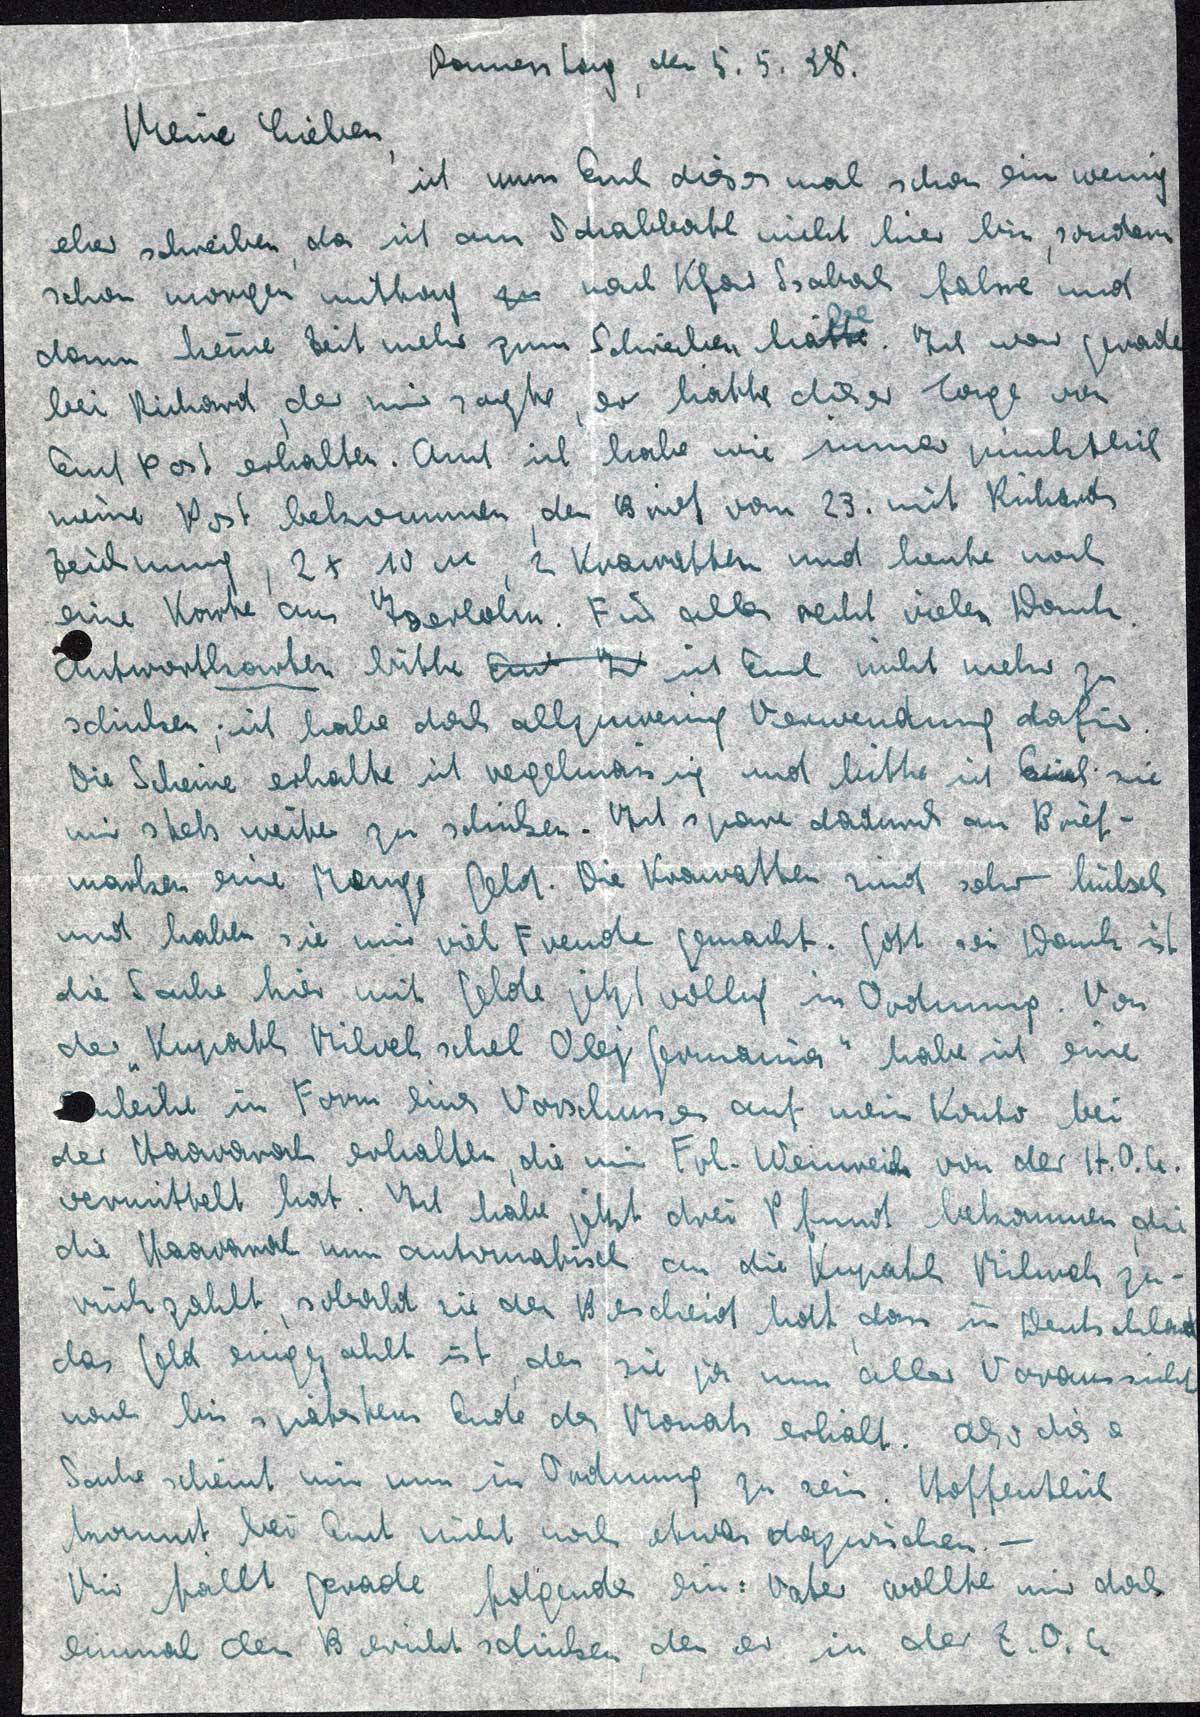 Donnerstag, den 5. 5. 38.
Meine Lieben,
ich muss Euch dieses mal schon ein wenig
eher schreiben, da ich am Schabbath nicht hier bin, sondern
schon morgen mittag zu nach Kfar Ssabah fahre und
dann keine Zeit mehr zum Schreiben hätte habe. Ich war gerade
bei Richard, der mir sagte, er hätte dieser Tage von
Euch Post erhalten. Auch ich habe wie immer pünktlich
meine Post bekommen, den Brief vom 23. mit Richards
Zeichnung, 2 x 10 M, 2 Krawatten und heute noch
eine Karte aus Iserlohn. Für alles recht vielen Dank.
Antwortkarten bitte Euch Ich ich Euch nicht mehr zu
schicken; ich habe doch allzuwenig Verwendung dafür.
Die Scheine erhalte ich regelmässig und bitte ich Euch sie
mir stets weiter zu schicken. Ich spare dadurch an Brief-
marken eine Menge Geld. Die Krawatten sind sehr hübsch
und haben sie mir viel Freude gemacht. Gott sei Dank ist
die Sache hier mit Gelde jetzt völlig in Ordnung. Von
der "Kupath Milwah schel Olej Germania" habe ich eine
Anleihe in Form eines Vorschusses auf mein Konto bei
der Haavarah erhalten, die mir Frl. Weinreich von der H.O.G.
vermittelt hat. Ich habe jetzt drei Pfund bekommen, die
die Haavarah nun automatisch an die Kupath Milwah zu-
rückzahlt, sobald sie den Bescheid hat, dass in Deutschland
das Geld eingezahlt ist, den sie ja nun aller Voraussicht
nach bis spätestens Ende des Monats erhält. Also diese
Sache scheint mir nun in Ordnung zu sein. Hoffentlich
kommt bei Euch nicht noch etwas dazwischen. —
Mir fällt gerade folgendes ein: Vater wollte mir doch
einmal den Bericht schicken, den er in der Z.O.G